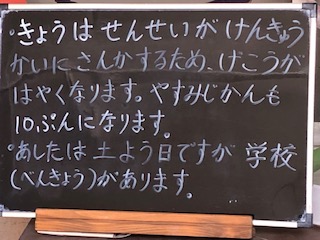 ・きょうはせんせいがけんきゅう
かいにさんかするため、げこうが
はやくなります。やすみじかんも
10ぷんになります。
・あしたは土よう日ですが学校
(べんきょう)があります。